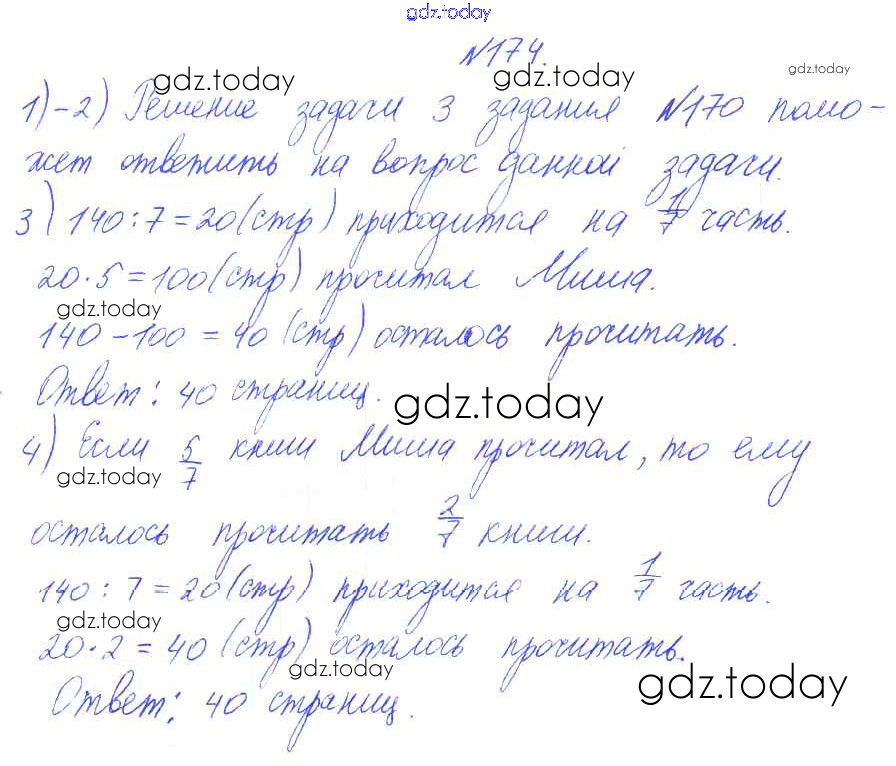 gdz.today
№174.
gdz.today
gdz.today
gdz.today
1)-2) Решение задачи 3 задания №170 помо-
жет ответить на вопрос данной задачи.
3) 140:7=20(стр) приходится на 1/7 часть.
20·5=100(стр) прочитал Миша.
gdz.today
140-100=40(стр) осталось прочитать.
Ответ: 40 страниц.
gdz.today
4) Если 5/7 книги Миша прочитал, то ему
gdz.today
осталось прочитать 2/7 книги.
140:7=20(стр) приходится на 1/7 часть.
gdz.today
20·2=40(стр) осталось прочитать.
gdz.today
gdz.today
Ответ: 40 страниц.